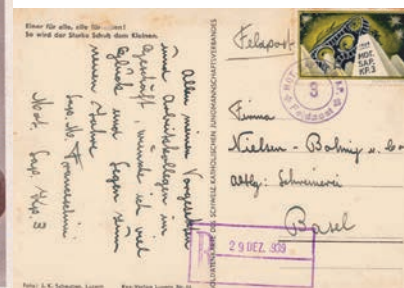 Einer für alle, alle für einen!
So wird der Starke Schutz dem Kleinen.
Allen meinen Vorgesetzten
und Arbeitskollegen im
Geschäft, wünsche ich viel
Glück und Segen zum
neuen Jahre
Sap.
Mot. Sap. Kp. 3
Foto: J. K. Luzern
SOLDATENKARTE DES SCHWEIZ. KATHOLISCHEN JUNGMANNSCHAFTSVERBANDES
Feldpost
MOT.
SAP.
KP. 3
3
Feldpost
Firma
Nielsen - Bohny u. Co
Abtlg: Schreinerei
Basel
R
29 DEZ. 939